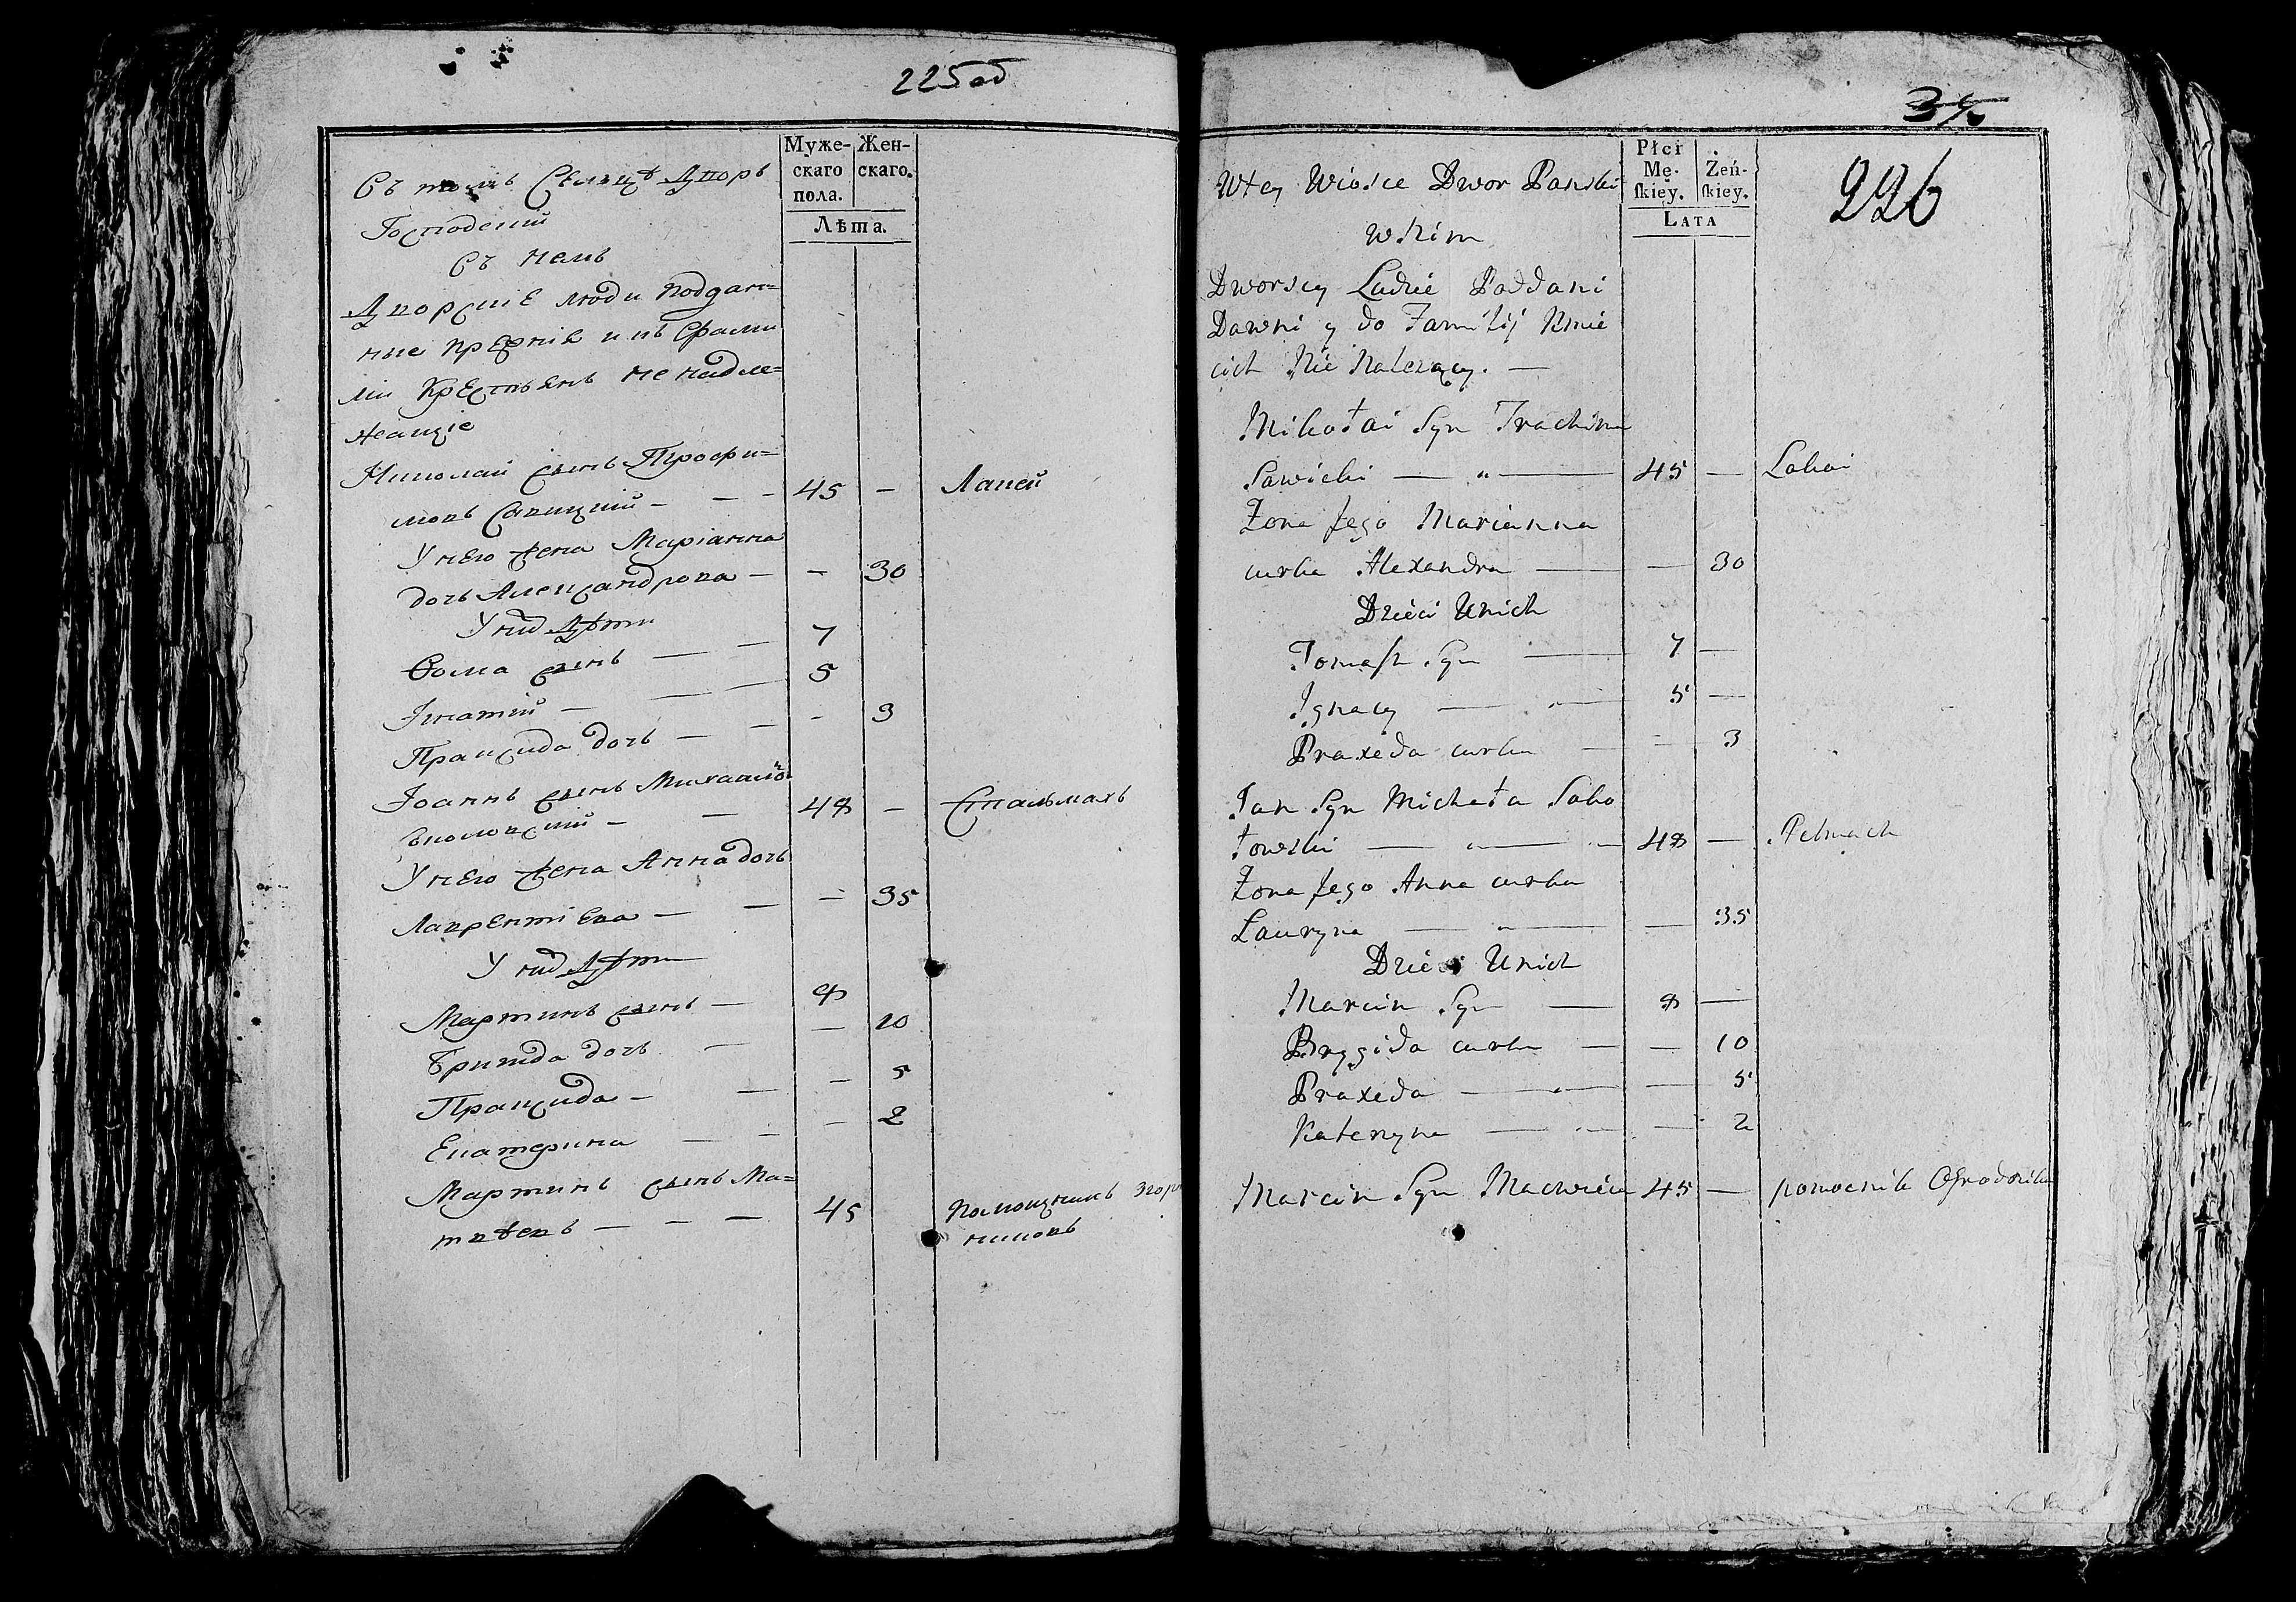 225об
Муже-
скаго
пола.
Жен-
скаго.
Лѣта.
Въ томъ Сельцѣ Дворъ
Господскій
Въ немъ
Дворскіе люди Подданные
ные Прежніе и въ Фами
ліи Крестьянъ не надле=
жащіе
Николай сынъ Трофи=
мовъ Савицкій — — — 45 — Лакей
У него жена Маріанна
дочь Александрова — — 30
У них Дѣти
Ѳома сынъ — — 7
Игнатій — — — 5
Праксида дочь — — — 3
Іоаннъ сынъ Михайло
Соколовскій — — 48 — Стальмахъ
У него жена Анна дочь
Лаврентіева — — — 35
У них Дѣти
Мартинъ сынъ — 8
Бригида дочь — — 10
Праксида — — — 5
Екатерина — — — 2
Мартинъ сынъ Ма=
твѣевъ — — — 45 Помощникъ
никовъ
35
226
Płci
Mę-
skiey.
Żeń-
skiey.
LATA
W tey Wiosce Dwor Panski
W Nim
Dworscy Ludzie Poddani
Dawni y do Familij Kmie
cich Nie Należący. —
Mikołai Syn Trachima
Sawicki — „ — 45 — Lokai
Żona Jego Marianna
curka Alexandra — — 30
Dzieci U nich
Tomasz Syn — 7 —
Ignacy — „ — 5 —
Praxeda curka — — 3
Jan Syn Michała Soko
łowski — „ — 48 — Stelmach
Żona Jego Anna curka
Lauryna — „ — — 35
Dzieci U nich
Marcin Syn — 8 —
Brygida curka — — 10
Praxeda — „ — — 5
Kateryna — „ — — 2
Marcin Syn Macwieia 45 — pomocnik Ogrodnika